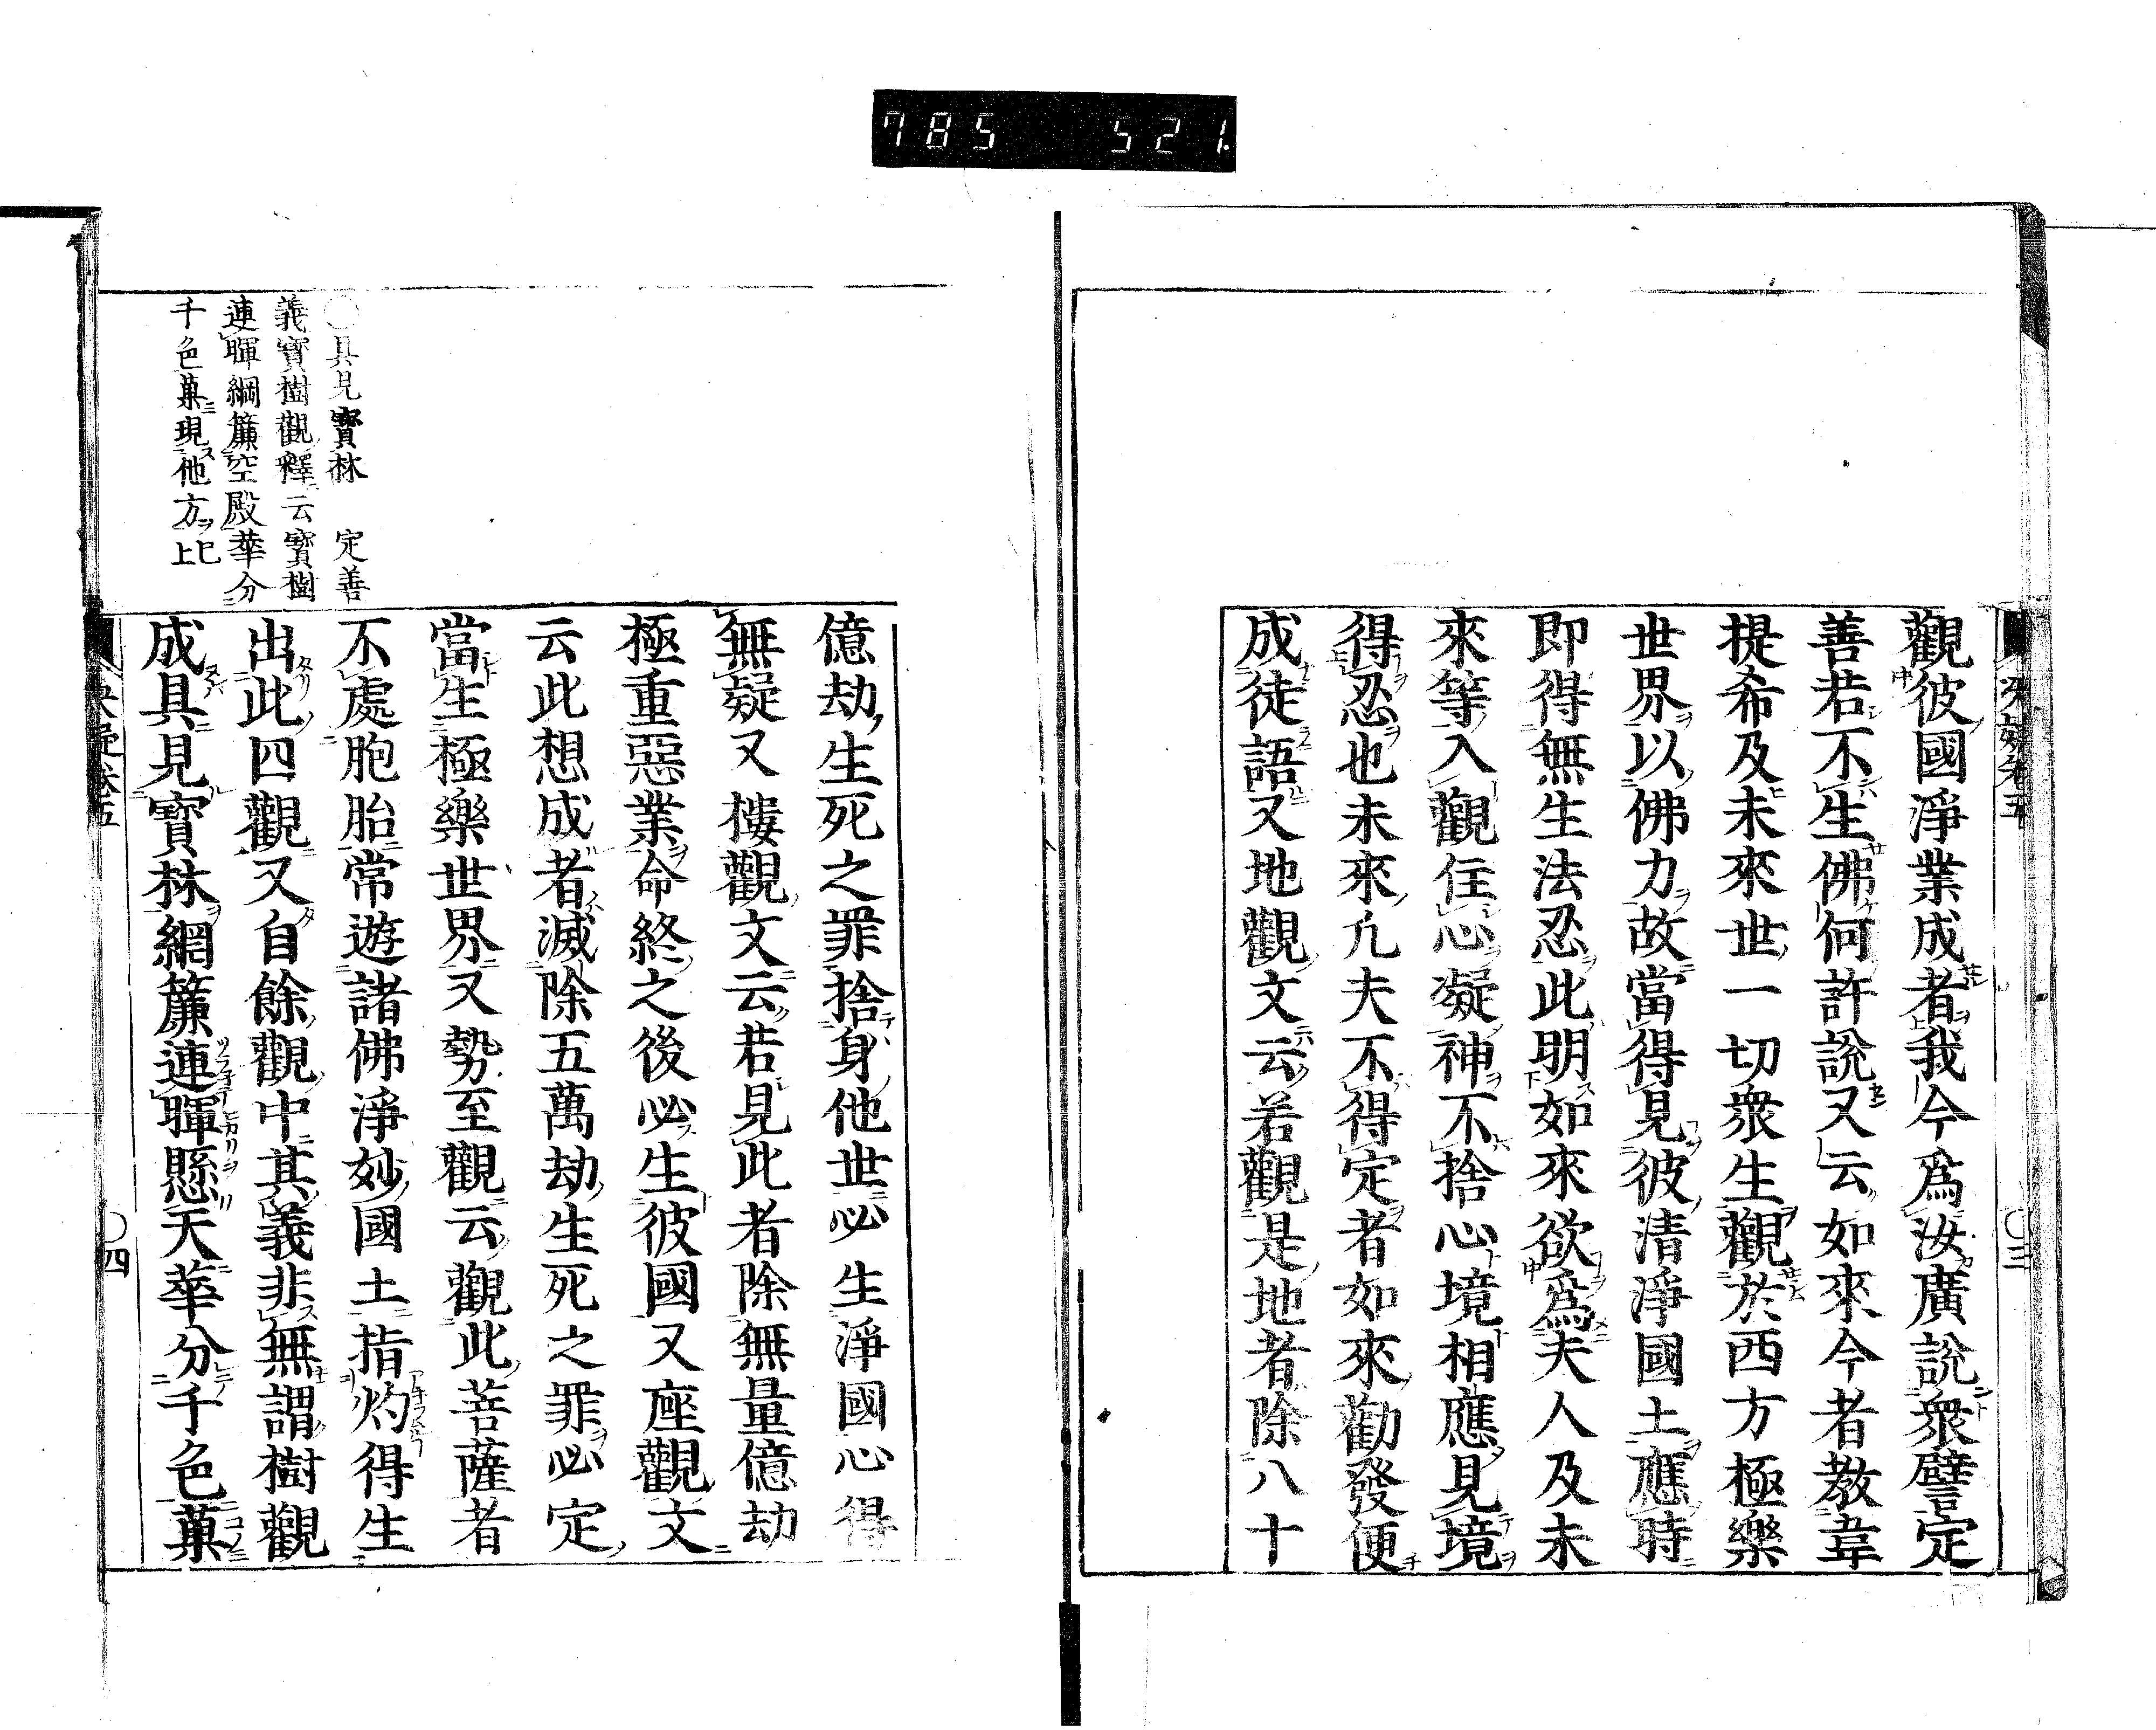 785 521.
觀彼國淨業成者我今爲汝廣說衆譬定
善若不生佛何許說又云如來今者敎韋
提希及未來世一切衆生觀於西方極樂
世界以佛力故當得見彼清淨國土應時
即得無生法忍此明如來欲爲夫人及未
來等入觀住心凝神不捨心境相應見境
得忍也未來凡夫不得定者如來勸發便
成徒語又地觀文云若觀是地者除八十
○具見寶林 定善
義寶樹觀釋云寶樹
連暉網簾空殿華分
千色菓現他方已上
億劫生死之罪捨身他世必生淨國心得
無疑又樓觀文云若見此者除無量億劫
極重惡業命終之後必生彼國又座觀文
云此想成者滅除五萬劫生死之罪必定
當生極樂世界又勢至觀云觀此菩薩者
不處胞胎常遊諸佛淨妙國土指灼得生
出此四觀又自餘觀中其義非無謂樹觀
成具見寶林網簾連暉懸天華分千色菓
決疑卷五 ○四